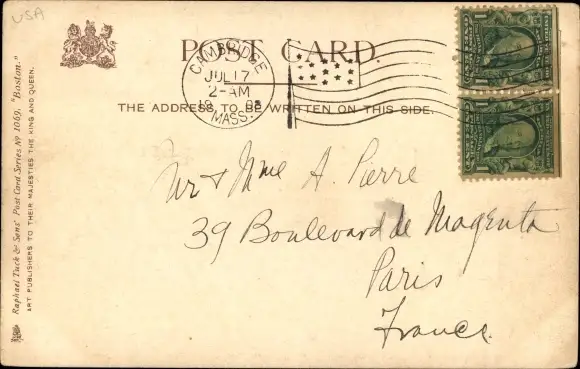 USA
POST CARD.
CAMBRIDGE
JUL 17
2-AM
MASS.
THE ADDRESS TO BE WRITTEN ON THIS SIDE.
Mr & Mme A. Pierre
39 Boulevard de Magenta
Paris
France.
Raphael Tuck & Sons' Post Card Series Nº 1069, "Boston."
ART PUBLISHERS TO THEIR MAJESTIES THE KING AND QUEEN.
1
1